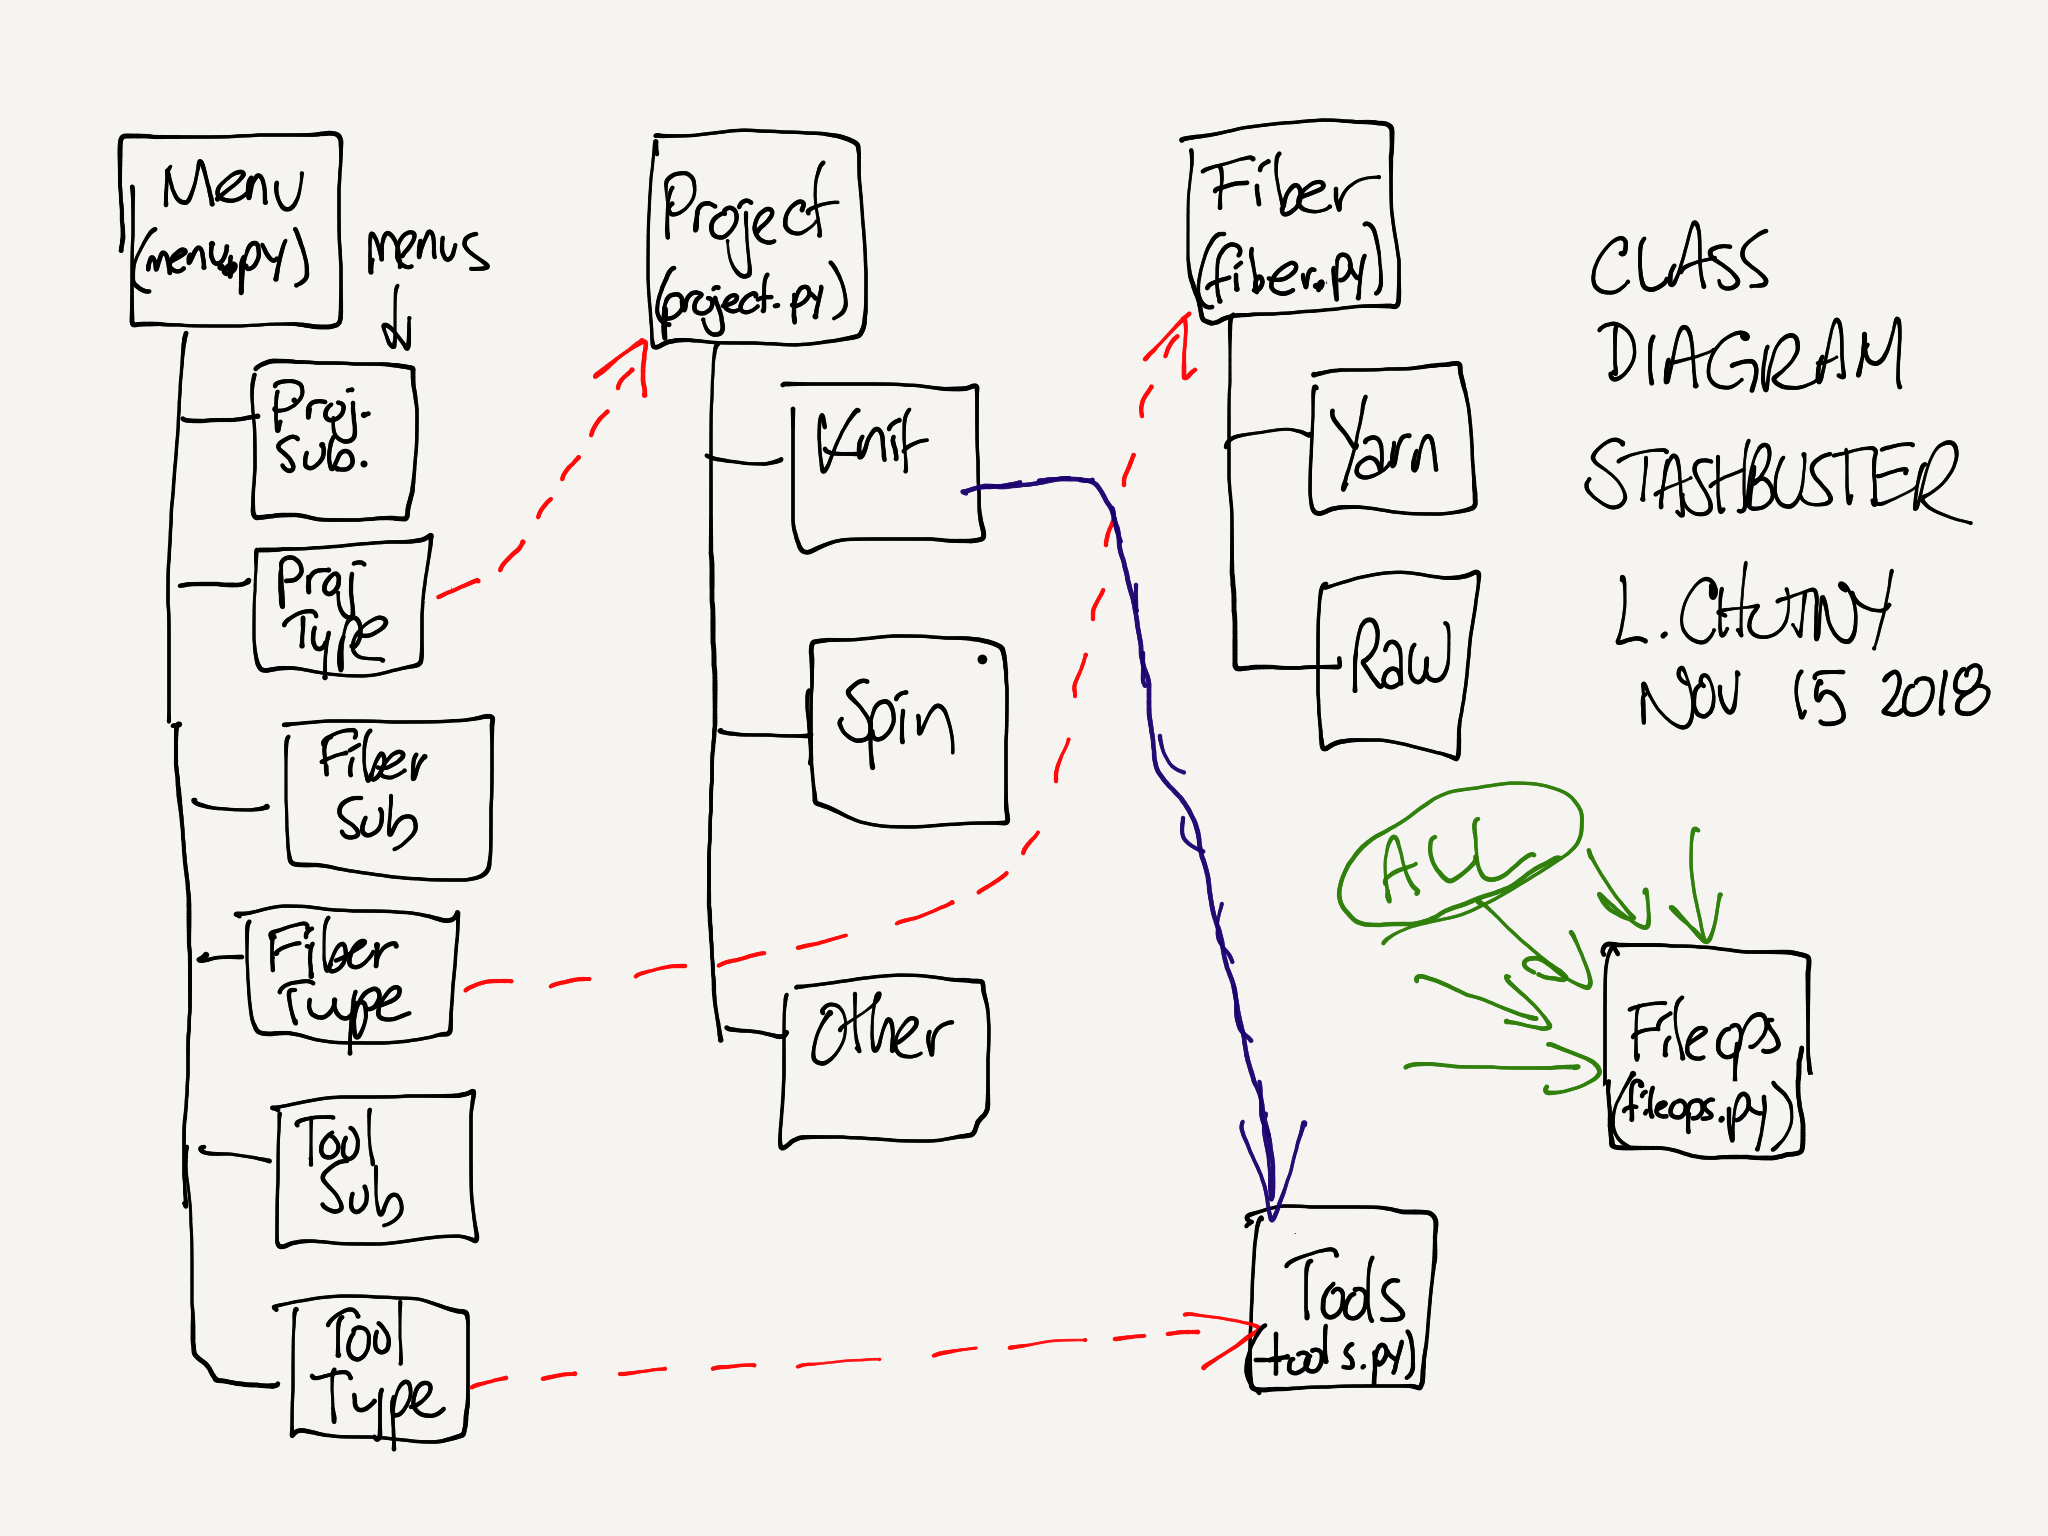 Menu
(menu.py)
menus
Proj.
Sub.
Proj
Type
Fiber
Sub
Fiber
Type
Tool
Sub
Tool
Type
Project
(project.py)
Knit
Spin
Other
Fiber
(fiber.py)
Yarn
Raw
CLASS
DIAGRAM
STASHBUSTER
L.
NOV 15 2018
ALL
Fileops
(fileops.py)
Tools
(tools.py)